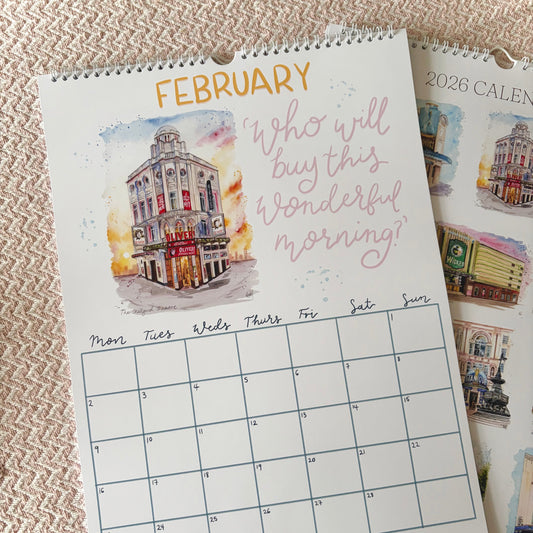 FEBRUARY
'Who will
buy this
Wonderful
morning?'
OLIVER
Mon Tues Weds Thurs Fri Sat Sun
1
2 3 4 5 6 7 8
9 10 11 12 13 14 15
16 17 18 19 20 21 22
24 25 26 27 28
2026 CALEN
WICKED